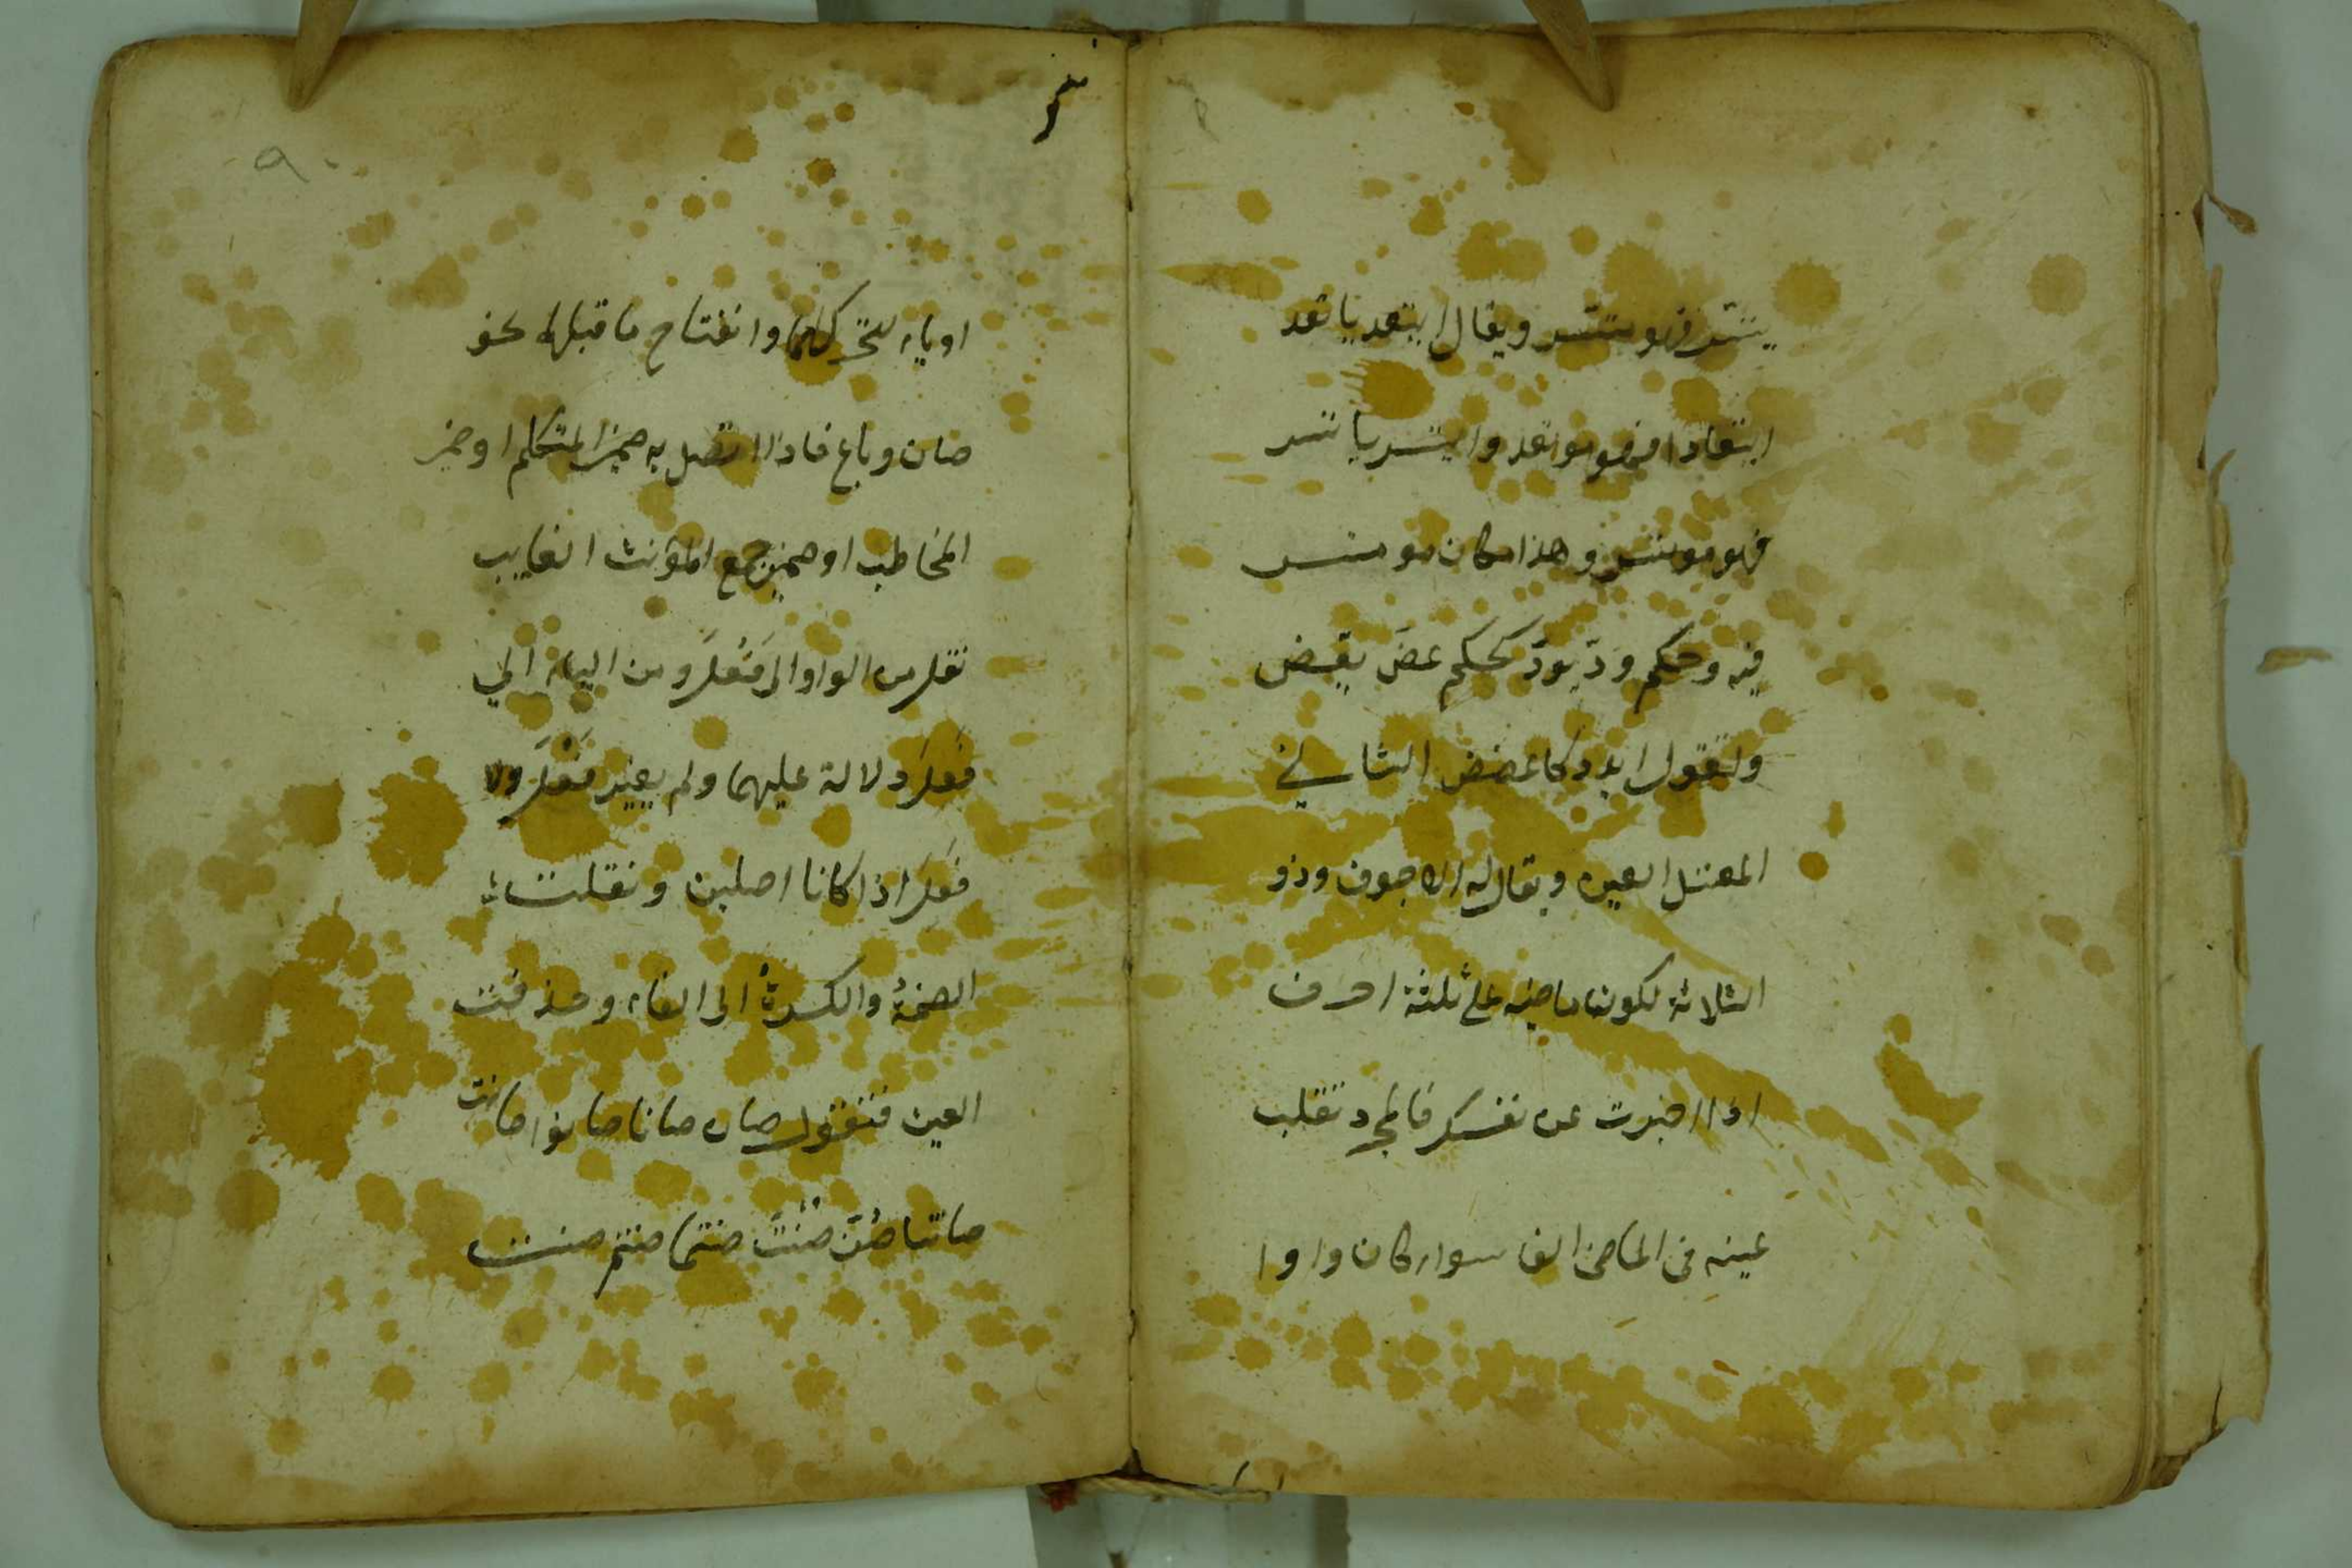 يتسر فهو متسر ويقال ايتعد ياتعد
ايتعادا فهو موتعد وايتسر ياتسر
فهو موتسر وهذا مكان موتسر
فيه وحكم ودّ يودّ كحكم عضّ يعض
وتقول ايدد كاعضض الثاني
المعتل العين ويقال له الاجوف وذو
الثلاثة لكون ماضيه على ثلثة احرف
اذا اخبرت عن نفسك فالمجرد تقلب
عينه في الماضي الفا سواء كان واوا
اوياء لتحركهما وانفتاح ما قبلها نحو
صان وباع فاذا اتصل به ضمير المتكلم او ضمير
المخاطب او ضمير جمع المؤنث الغايب
نقل من الواو الى فَعُلَ ومن الياء الي
فَعِلَ دلالة عليهما ولم يغير فَعُلَ ولا
فَعِلَ اذا كانا اصلين ونقلت
الضمةُ والكسرةُ الى الفاء وحذفت
العين فتقول صان صانا صانوا صانت
صانتا صُنَّ صُنْتَ صنتما صنتم صنت
٩٠